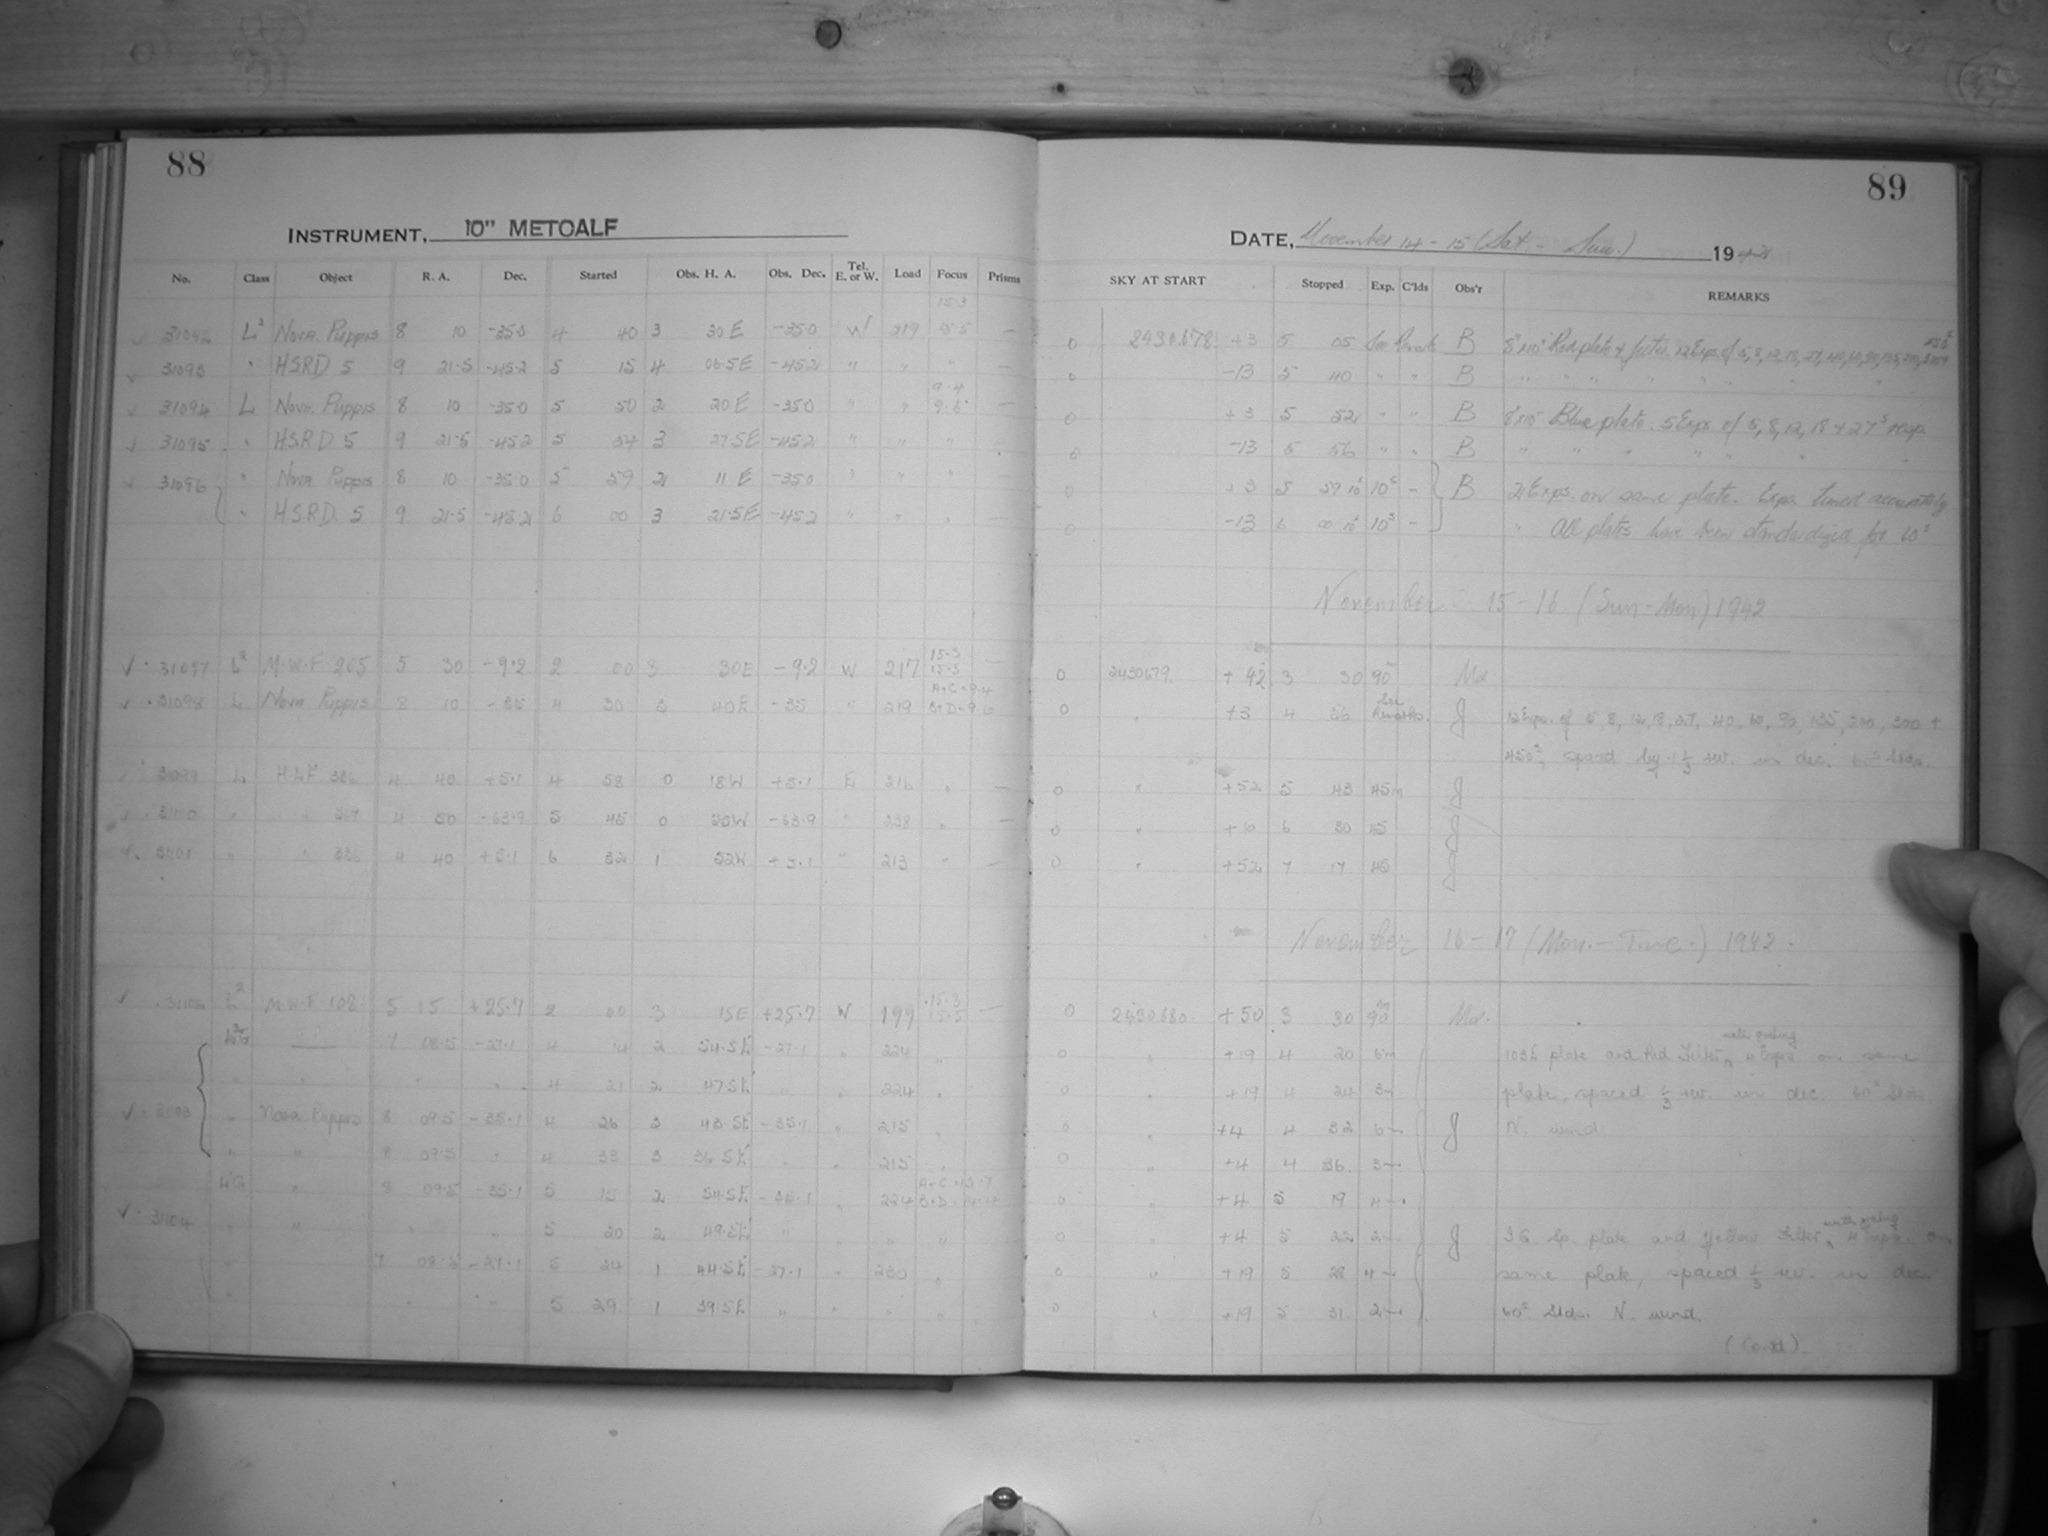 88
INSTRUMENT, 10" METCALF
No. Class Object R. A. Dec. Started Obs. H. A. Obs. Dec. Tel. E. or W. Load Focus Prisms
15.3
31092 L² Nova Puppis 8 10 -35.0 4 40 3 30 E -35.0 W 219 —
31093 " HSRD 5 9 21.5 -45.2 5 15 4 06.5E -45.2 " " " —
9.4
31094 L Nova Puppis 8 10 -35.0 5 50 2 20 E -35.0 " " 9.6 —
31095 " HSRD 5 9 21.5 -45.2 5 54 3 27.5E -45.2 " " "
31096 " Nova Puppis 8 10 -35.0 5 59 2 11 E -35.0 " " "
" H.S.R.D. 5 9 21.5 -45.2 6 00 3 21.5E -45.2 " "
15.3
31097 L² M.W.F. 265 5 30 -9.2 2 00 3 30E -9.2 W 217 15.5 —
A+C=9.4
31098 L Nova Puppis 8 10 -35 4 30 3 40E -35 " 219 B+D=9.6
31099 L H.L.F 336 4 40 +5.1 4 58 0 18W +5.1 E 216 " —
31100 " " 4 50 -63.9 5 45 0 -63.9 " 238 " —
3101 " " 336 4 40 +5.1 6 32 1 52W +5.1 " 213 " —
15.3
L² M.W.F 108 5 15 +25.7 2 00 3 15E +25.7 W 199 15.5 —
7 08.5 -27.1 4 14 2 54.5E -27.1 " 224 "
" " " " 4 21 2 47.5E " " 224 "
3103 " Nova Puppis 8 09.5 -35.1 4 26 3 43.5E -35.1 " 215 "
" " 8 09.5 " 4 33 3 36.5E " " 215
" 8 09.5 -35.1 5 15 2 54.5E -35.1 " 224
31104 " " " " 5 20 2 49.5E " " " "
" 7 08.5 -27.1 5 24 1 44.5E -27.1 " 230 "
" " 5 29 1 39.5E " " " "
89
DATE, November 14 - 15 (Sat - Sun.) 1942
SKY AT START Stopped Exp. C'lds Obs'r REMARKS
0 2430678 +3 5 05 See Remarks B 8x10" Red plate & filter. 12 Exps of 5, 8, 12, 18, 27, 40, 60, 90, 135, 200, 300 + 450ˢ
0 -13 5 40 " " B " " " " " "
0 +3 5 52 " " B 8x10" Blue plate. 5 Exps of 5, 8, 12, 18 + 27ˢ resp.
0 -13 5 56 " " B " " " " " "
0 +3 5 59 10ˢ 10ˢ - B 2 Exps. on same plate. Exps. timed accurately
0 -13 6 00 10ˢ 10ˢ - " All plates have been standardized for 60ˢ
November 15 - 16 (Sun - Mon) 1942
0 2430679. +42 3 30 90 Md
0 " +3 4 56 See Remarks. J 12 Exps. of 5, 8, 12, 18, 27, 40, 60, 90, 135, 200, 300 +
450ˢ, spaced by 1⅓ rev. in dec. 60ˢ Stdn.
0 " +52 5 43 45m J
0 " +6 6 30 45 J
0 " +52 7 17 45 J
November 16 - 17 (Mon. - Tue.) 1942.
0 2430680. +50 3 30 90 Md.
with grating
0 " +19 4 20 6m 103E plate and Red Filter, 4 Exps on same
0 " +19 4 24 3m plate, spaced ⅓ rev. in dec. 60ˢ Stdn.
0 " +4 4 32 6m J N. wind
0 " +4 4 36. 3m
0 " +4 5 19 4m
with grating
0 " +4 5 22 2m J I G. Sp. plate and Yellow Filter, 4 Exps. on
0 " +19 5 28 4m same plate, spaced ⅓ rev. in dec.
0 " +19 5 31. 2m 60ˢ Stdn. N. wind.
(Contd).